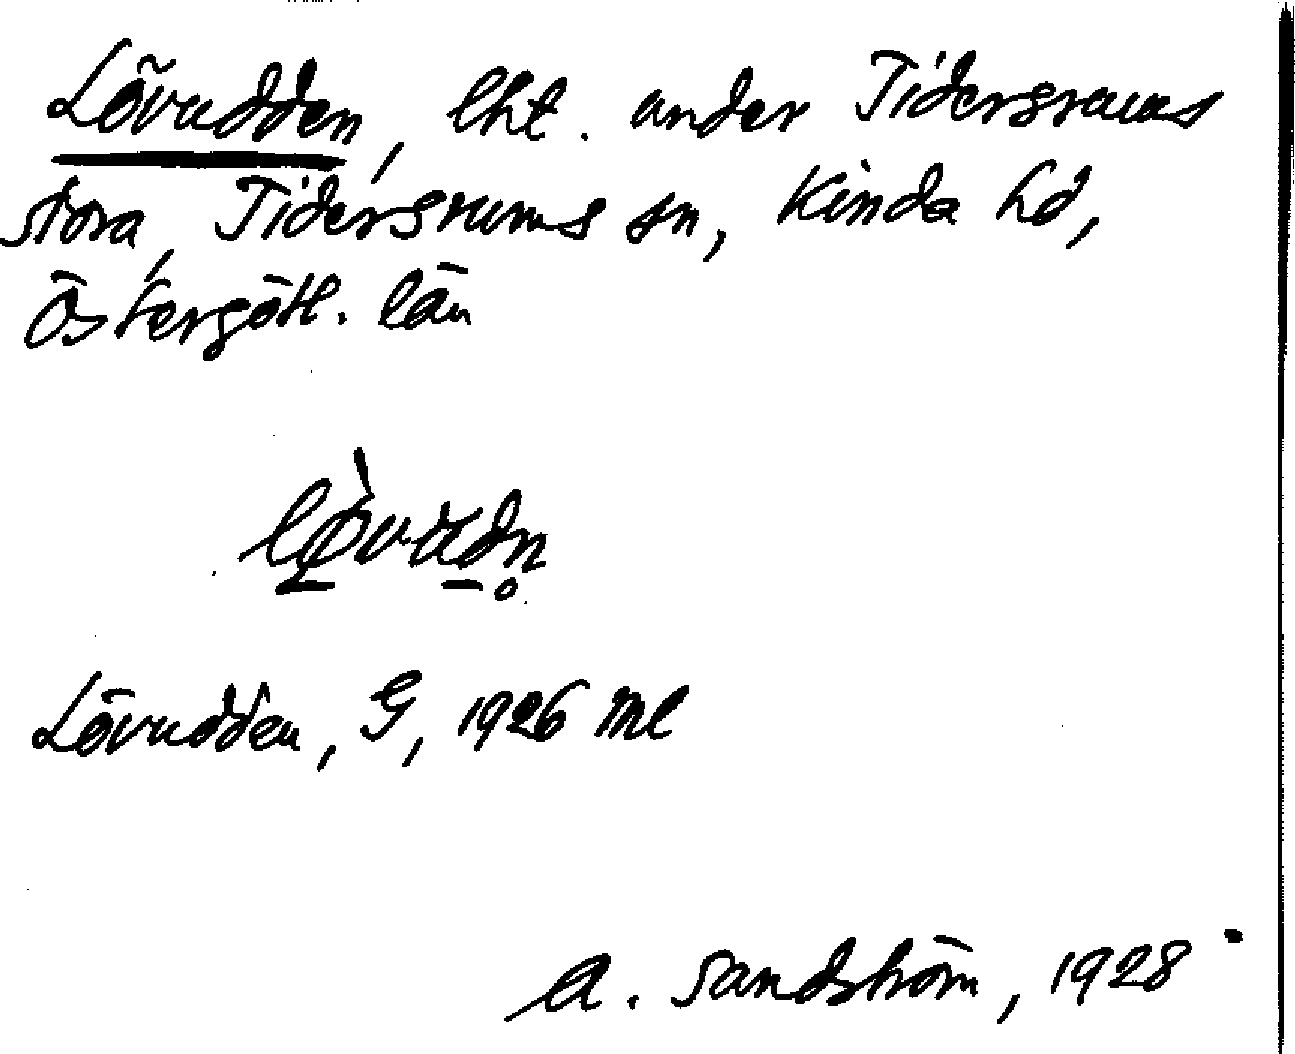 Lövudden, lht. under Tidersrums
stora, Tidersrums sn, Kinda hd,
Östergötl. län
lø̀vudn̥
Lövudden, G, 1926 Ml
A. Sandström, 1928